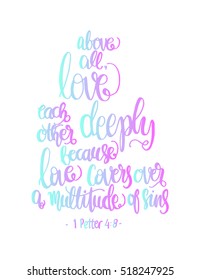 above
all,
love
each
other deeply
because
love covers over
a multitude of sins
- 1 Petter 4:8 -
shutterstock
518247925